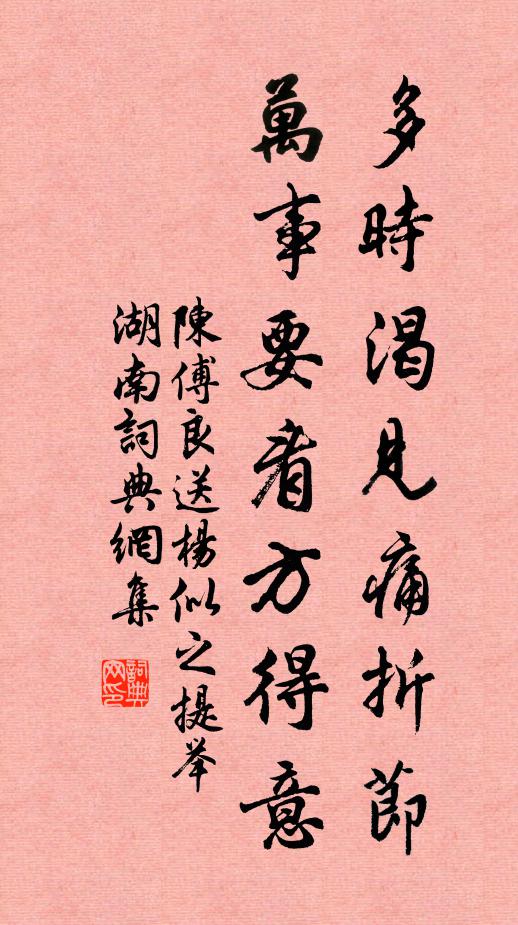 多時渴見痛折節
萬事要看方得意
陳傅良送楊似之提举
湖南詞典網集
詞典网印